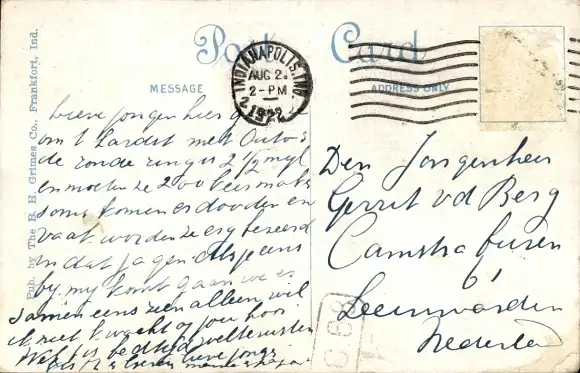 Post Card
MESSAGE
ADDRESS ONLY
INDIANAPOLIS, IND.
AUG 2
2-PM
1922
Pub. by The B. H. Grimes Co., Frankfort, Ind.
Lieve jongen hier
om t hardst met Auto's
de ronde ring is 2 1/2 myl
en moeten ze 200 keer maken
soms komen er dooden en
vaak worden ze erg bezeerd
in dat jagen als je eens
by my komt gaan we er
samen eens zien alleen wil
ik niet
Wel t is bedtijd welterusten
lieve jongen
Den Jongenheer
Gerrit vd Berg
Camstra buren
6
Leeuwarden
Nederland
C 68